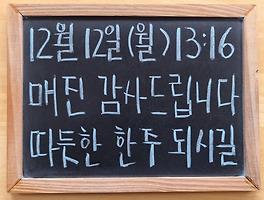 12월 12일 (월) 13:16
매진 감사드립니다
따듯한 한주 되시길